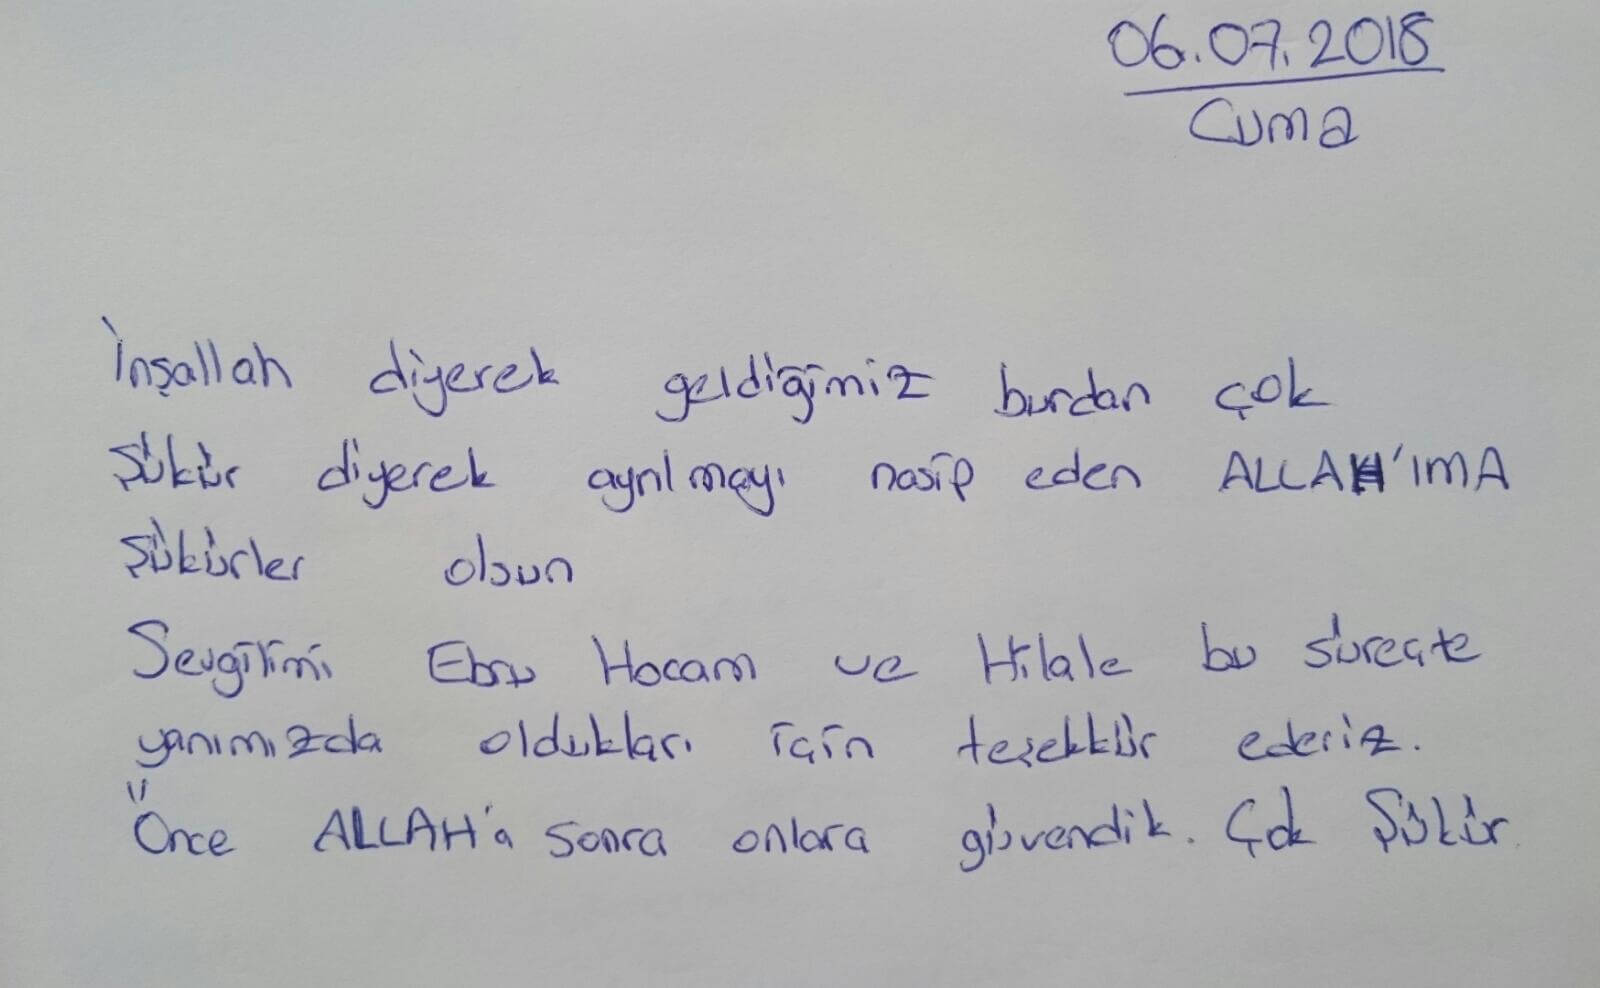 06.07.2018
Cuma
İnşallah diyerek geldiğimiz burdan çok
Şükür diyerek ayrılmayı nasip eden ALLAH'IMA
Şükürler olsun
Sevgilimi Ebru Hocam ve Hilale bu süreçte
yanımızda oldukları için teşekkür ederiz.
Önce ALLAH'a sonra onlara güvendik. Çok Şükür.